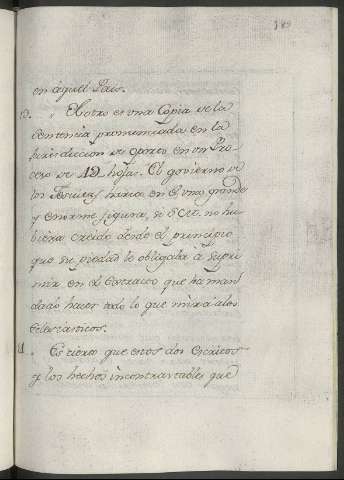 en aquel Pais.
10. El otro es una Copia de la
sentencia pronunciada en la
Jurisdiccion de oporto en un Pro-
ceso de 42 hojas. El govierno de
los Jesuitas haria en el una grande
y enorme figura, si S. M. no hu-
biera creido desde el principio
que su piedad le obligaba â supri-
mir en el Extracto que ha man-
dado hacer todo lo que mira a los
eclesiasticos.
11. Es cierto que estos dos Escritos
y los hechos incontrastables que